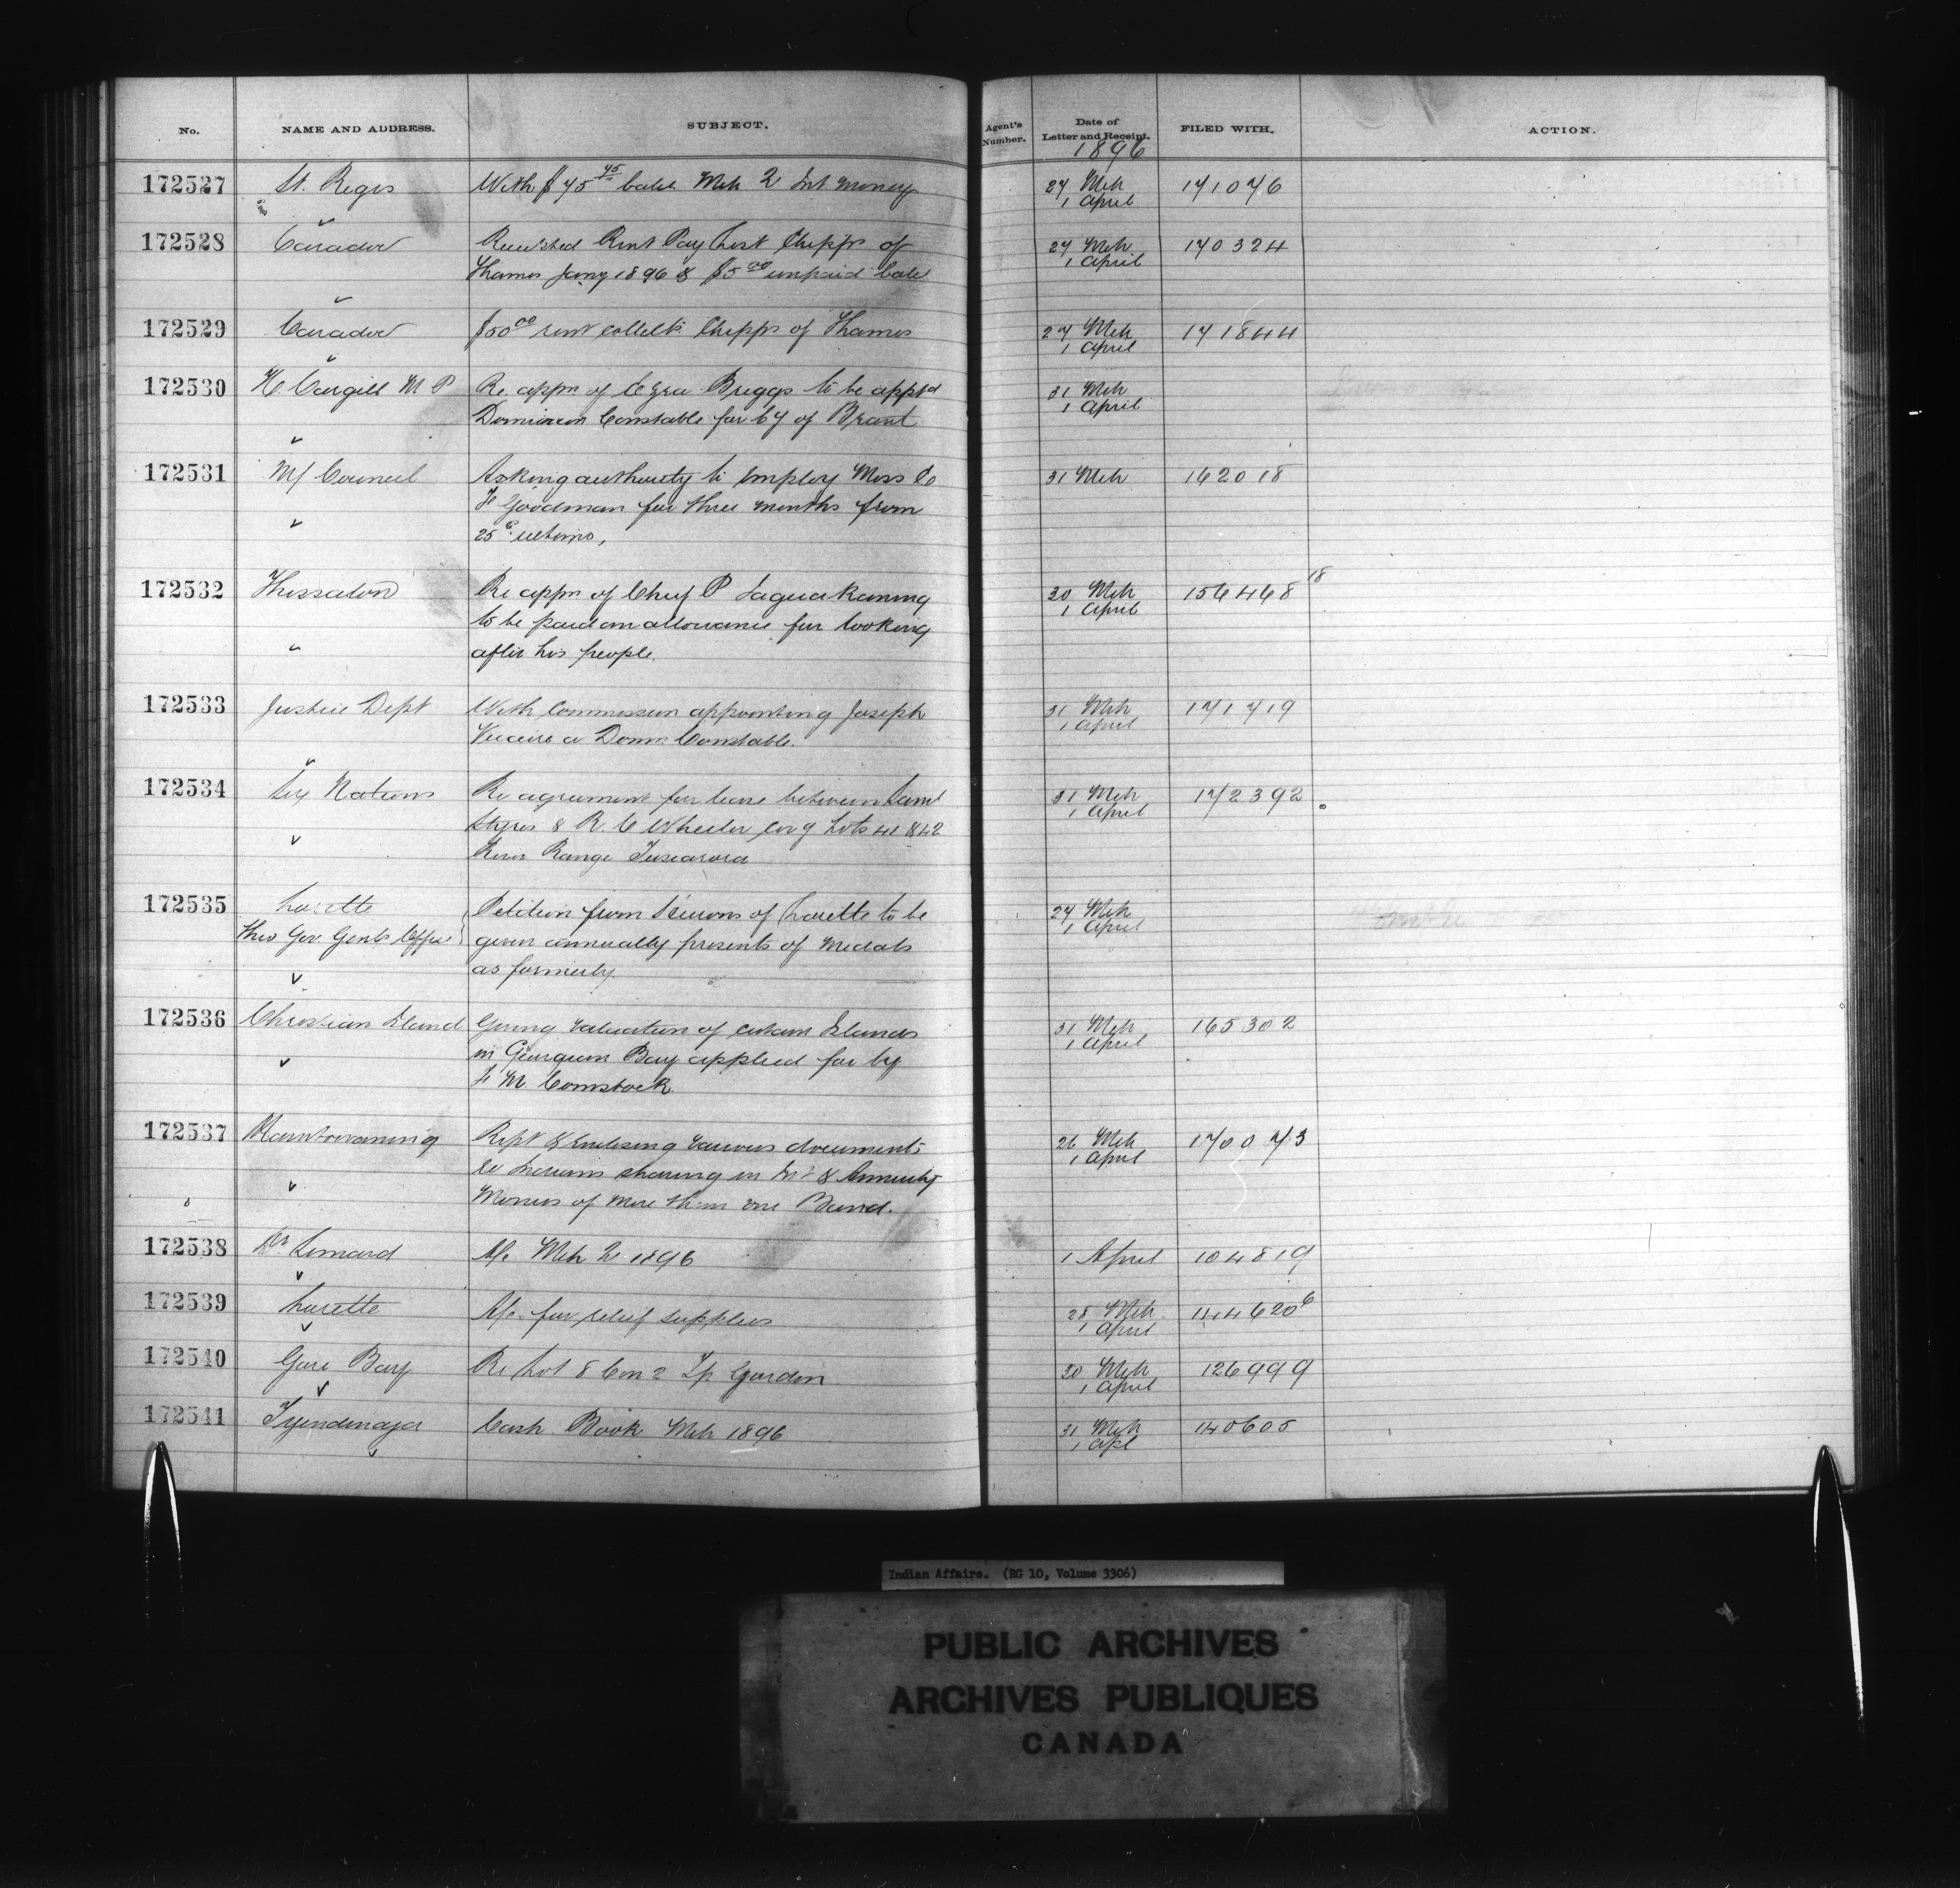 No. NAME AND ADDRESS. SUBJECT. Agent's Number. Date of Letter and Receipt. FILED WITH. ACTION.
1896
172527 St. Regis With $45 45 bale Mch 2 Int Money 27 Mch 171076
1 April
172528 Caradoc Receipted Rent Pay List Chipps of 27 Mch 170324
Thames Jany 1896 & $5 00 unpaid bale 1 April
172529 Caradoc $50 00 rent collectn Chipps of Thames 27 Mch 171844
1 April
172530 H Cargill M P Re appn of Ezra Briggs to be apptd 31 Mch
Dominion Constable for Cy of Brant 1 April
172531 M/ Council Asking authority to employ Miss 31 Mch 162018
F Goodman for three months from
25th ultimo,
172532 Thessalon Re appn of Chief P 30 Mch 156468 18
to be paid an allowance for looking 1 April
after his people.
172533 Justice Dept With Commission appointing Joseph 31 Mch 171719
a Domn Constable. 1 April
172534 Six Nations Re agreement for lease between Saml 31 Mch 172392
Styres & R. C Wheeler covg Lots 41 & 42 1 April
River Range Tuscarora
172535 Lorette Petition from Hurons of Lorette to be 27 Mch
Thro Gov. Genls Office given annually presents of Medals 1 April
as formerly.
172536 Christian Island Giving valuation of certain Islands 31 Mch 165302
in Georgian Bay applied for by 1 April
F M. Comstock
172537 Manitowaning Rept & enclosing various documents 26 Mch 170073
re Indians sharing in Int & Annuity 1 April
Monies of more than one Band.
172538 Dr Leonard A/c Mch 1896 1 April 104819
172539 Lorette A/c. for relief supplies 28 Mch 144620 6
1 April
172540 Gore Bay Re Lot 8 Con 2 Tp Gordon 30 Mch 126999
1 April
172541 Tyendinaga Cash Book Mch 1896 31 Mch 140605
1 Apl
Indian Affairs. (RG 10, Volume 3306)
PUBLIC ARCHIVES
ARCHIVES PUBLIQUES
CANADA